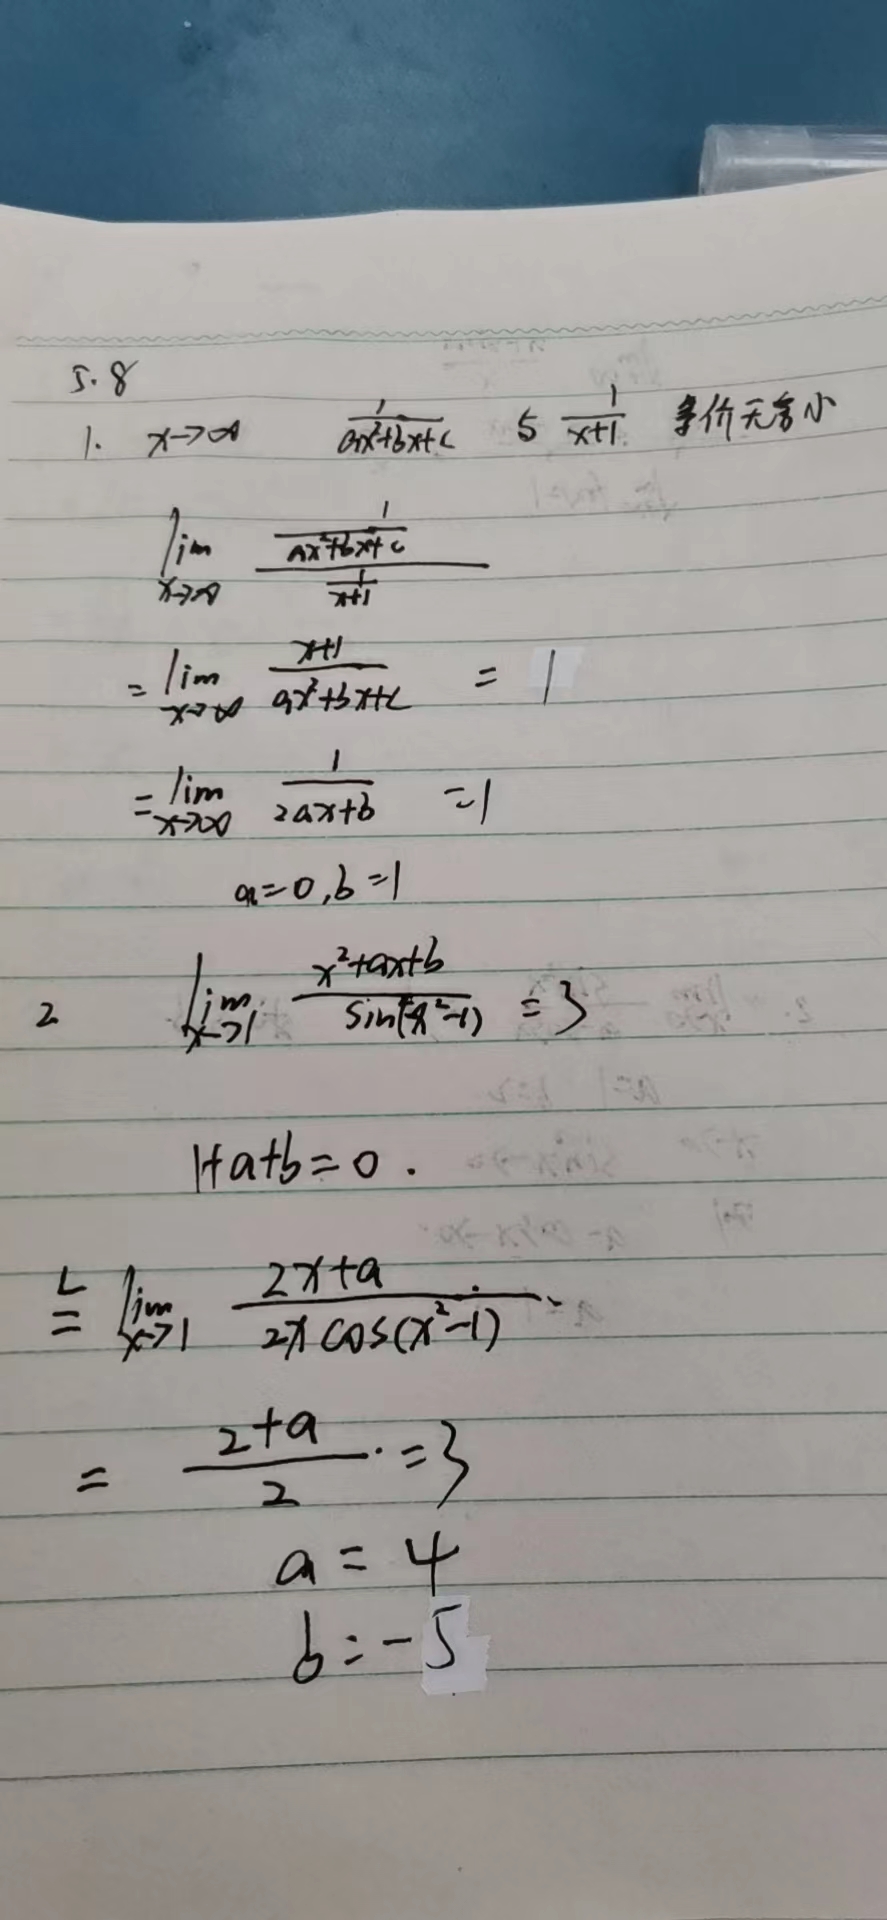 5.8
1. x→∞ 1/(ax²+bx+c) 与 1/(x+1) 等价无穷小
lim x→∞ (1/(ax²+bx+c))/(1/(x+1))
= lim x→∞ (x+1)/(ax²+bx+c) = 1
= lim x→∞ 1/(2ax+b) = 1
a=0, b=1
2. lim x→1 (x²+ax+b)/sin(x²-1) = 3
1+a+b=0.
L= lim x→1 (2x+a)/(2x cos(x²-1))
= (2+a)/2 = 3
a = 4
b = -5